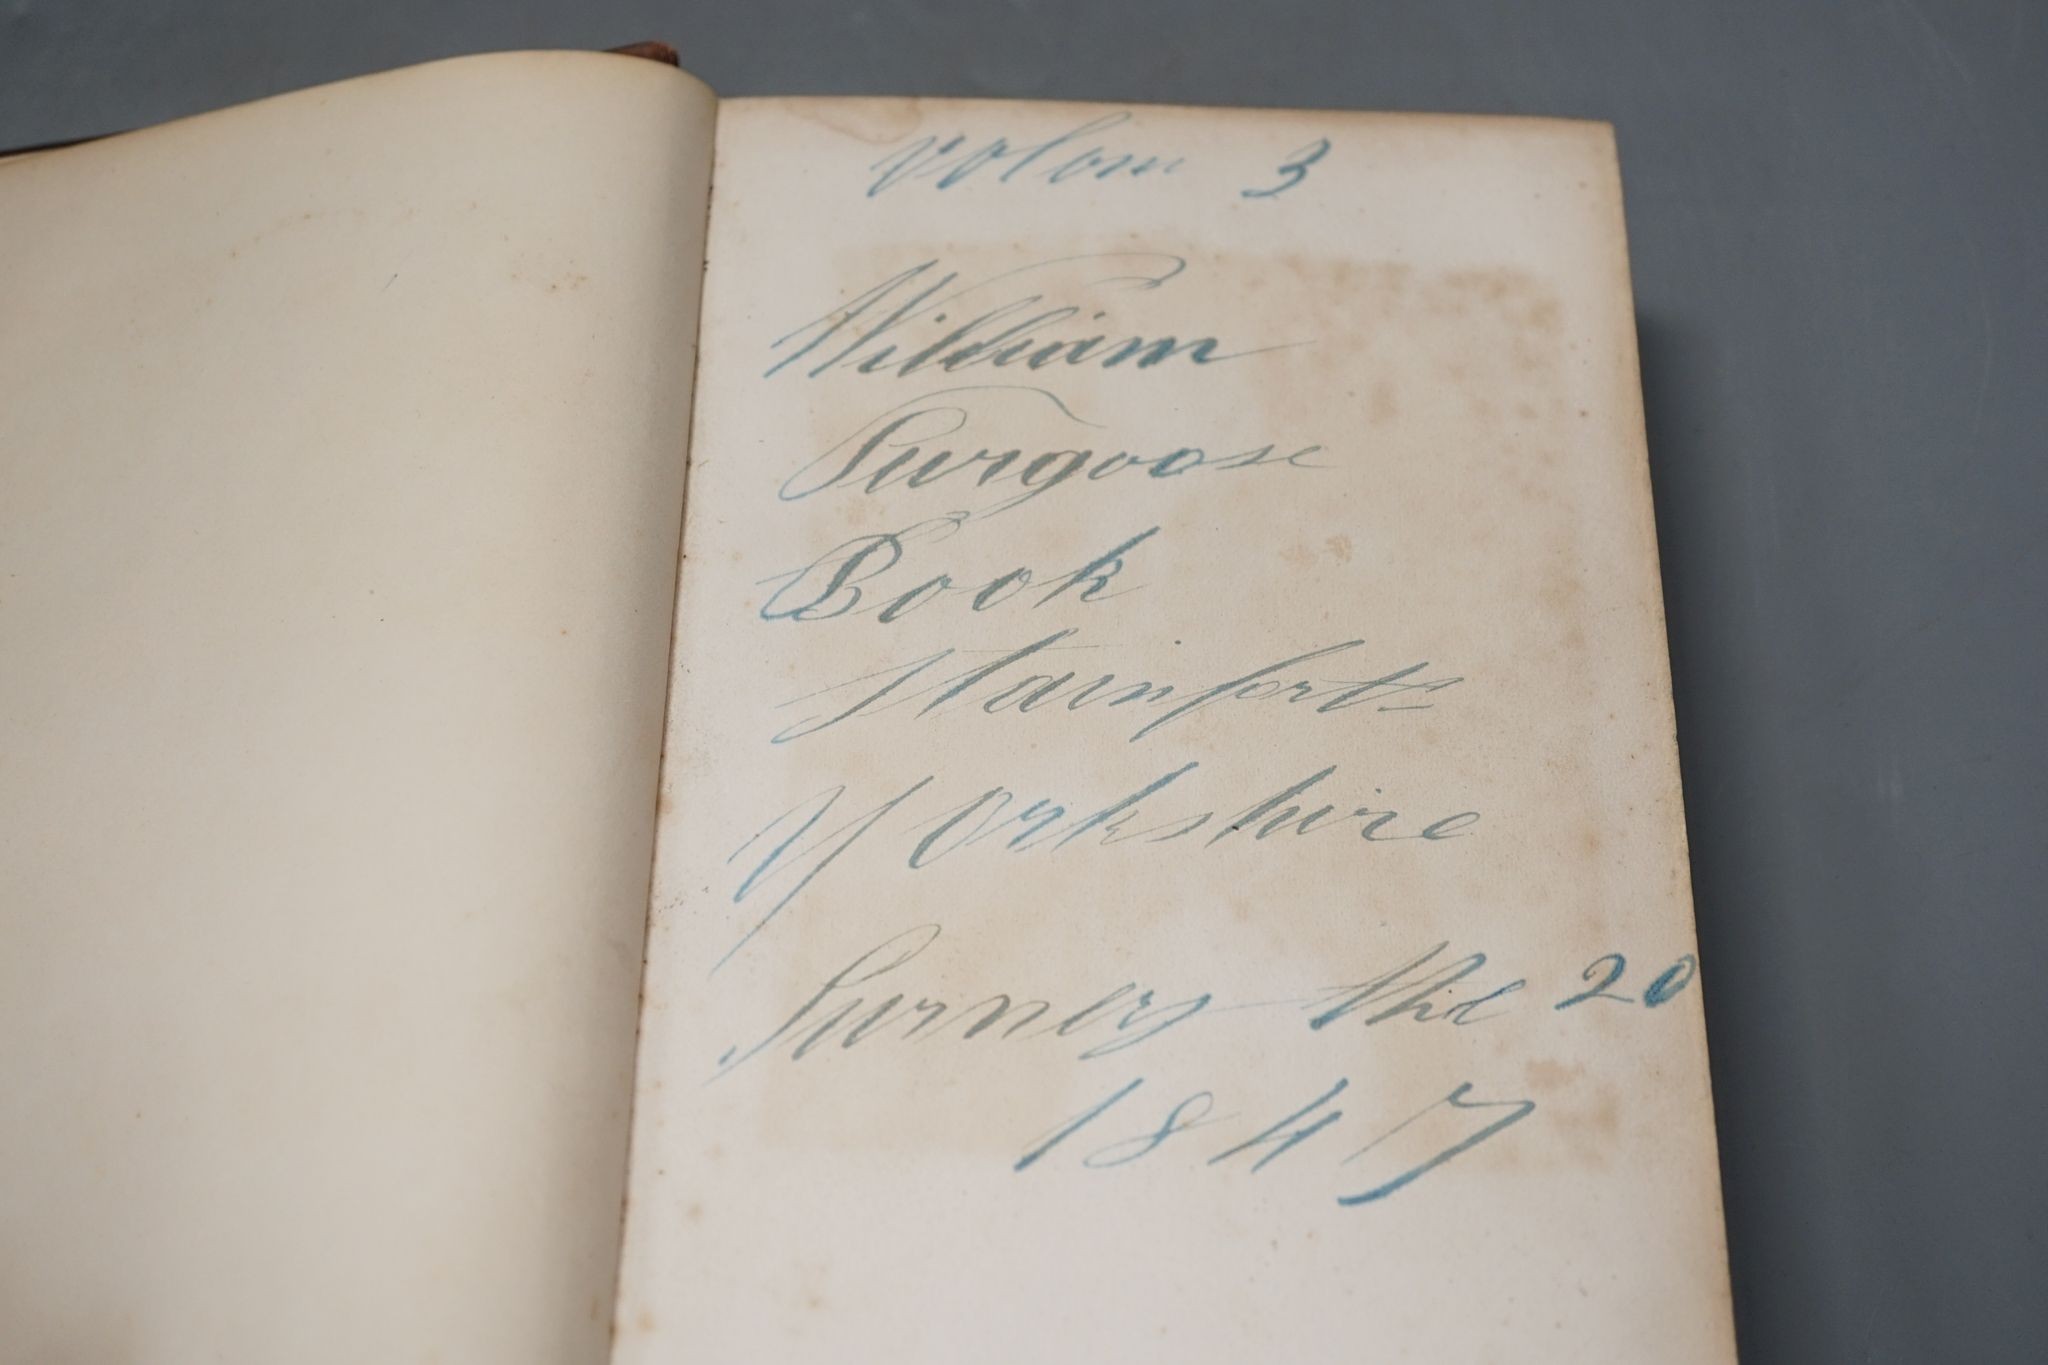 Volom 3
William
Purgoose
Book
Stainforth
Yorkshire
the 20
1847